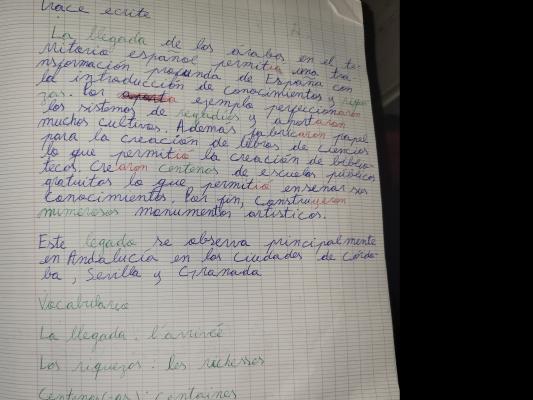 Trace écrite
La llegada de los arabos en el te-
rritorio español permitió una tra
nsformación profunda de España con
la introducción de conocimientos y rique
zas. Por ejemplo perfeccionaron
los sistemas de regadios y aportaron
muchos cultivos. Ademas fabricaron papel
para la creación de libros de ciencias
lo que permitió la creación de biblio
tecas. Crearon centenas de escuelas públicas
gratuitas lo que permitió enseñar sus
conocimientos. Por fin, construyeron
numerosos monumentos artisticos.
Este legado se observa principalmente
en Andalucía en las ciudades de Córdo-
ba, Sevilla y Granada
Vocabulario
La llegada : l'arrivée
Las riquezas : les richesses
Centenas(zas) : centaines